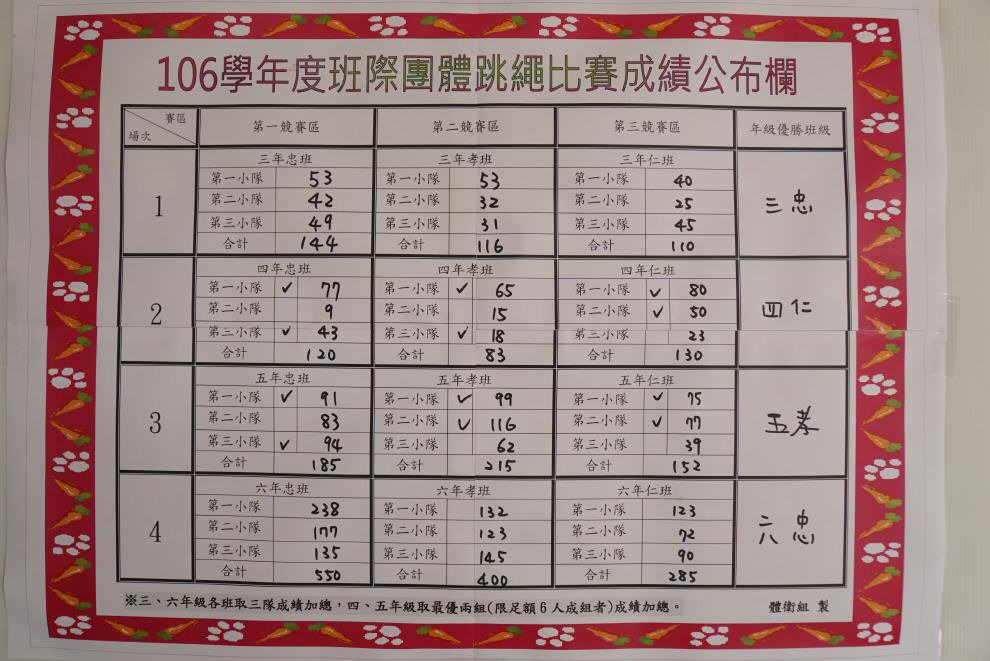 106學年度班際團體跳繩比賽成績公布欄
賽區 場次 第一競賽區 第二競賽區 第三競賽區 年級優勝班級
三年忠班 三年孝班 三年仁班
第一小隊 53 第一小隊 53 第一小隊 40
1 第二小隊 42 第二小隊 32 第二小隊 25 三忠
第三小隊 49 第三小隊 31 第三小隊 45
合計 144 合計 116 合計 110
四年忠班 四年孝班 四年仁班
第一小隊 ✓ 77 第一小隊 ✓ 65 第一小隊 ✓ 80
2 第二小隊 9 第二小隊 15 第二小隊 ✓ 50 四仁
第三小隊 ✓ 43 第三小隊 ✓ 18 第三小隊 23
合計 120 合計 83 合計 130
五年忠班 五年孝班 五年仁班
第一小隊 ✓ 91 第一小隊 ✓ 99 第一小隊 ✓ 75
3 第二小隊 83 第二小隊 ✓ 116 第二小隊 ✓ 77 五孝
第三小隊 ✓ 94 第三小隊 62 第三小隊 39
合計 185 合計 215 合計 152
六年忠班 六年孝班 六年仁班
第一小隊 238 第一小隊 132 第一小隊 123
4 第二小隊 177 第二小隊 123 第二小隊 72 六忠
第三小隊 135 第三小隊 145 第三小隊 90
合計 550 合計 400 合計 285
※三、六年級各班取三隊成績加總，四、五年級取最優兩組(限足額6人成組者)成績加總。 體衛組 製